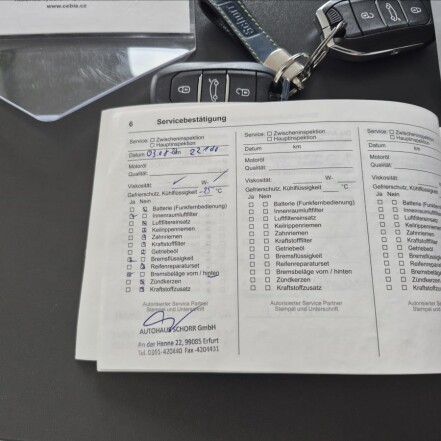 www.cebia.cz
6 Servicebestätigung
Service: Zwischeninspektion
Hauptinspektion
Datum km
Motoröl
Qualität:
Viskosität: W-
Gefrierschutz, Kühlflüssigkeit -25 °C
Ja Nein
Batterie (Funkfernbedienung)
Innenraumluftfilter
Luftfiltereinsatz
Keilrippenriemen
Zahnriemen
Kraftstofffilter
Getriebeöl
Bremsflüssigkeit
Reifenreparaturset
Bremsbeläge vorn / hinten
Zündkerzen
Kraftstoffzusatz
Autorisierter Service Partner
Stempel und Unterschrift
AUTOHAUS SCHORR GmbH
An der Henne 22, 99085 Erfurt
Tel. 0361-420440 Fax -4204431
Service: Zwischeninspektion
Hauptinspektion
Datum km
Motoröl
Qualität:
Viskosität: W-
Gefrierschutz, Kühlflüssigkeit °C
Ja Nein
Batterie (Funkfernbedienung)
Innenraumluftfilter
Luftfiltereinsatz
Keilrippenriemen
Zahnriemen
Kraftstofffilter
Getriebeöl
Bremsflüssigkeit
Reifenreparaturset
Bremsbeläge vorn / hinten
Zündkerzen
Kraftstoffzusatz
Autorisierter Service Partner
Stempel und Unterschrift
Service: Zwischeninspektion
Hauptinspektion
Datum km
Motoröl
Qualität:
Viskosität:
Gefrierschutz, Kühlflüssigkeit
Ja Nein
Batterie (Funkfernbedien
Innenraumluftfilter
Luftfiltereinsatz
Keilrippenriemen
Zahnriemen
Kraftstofffilter
Getriebeöl
Bremsflüssigkeit
Reifenreparaturset
Bremsbeläge vorn
Zündkerzen
Kraftstoffzusatz
Autorisierter Service
Stempel und Unter